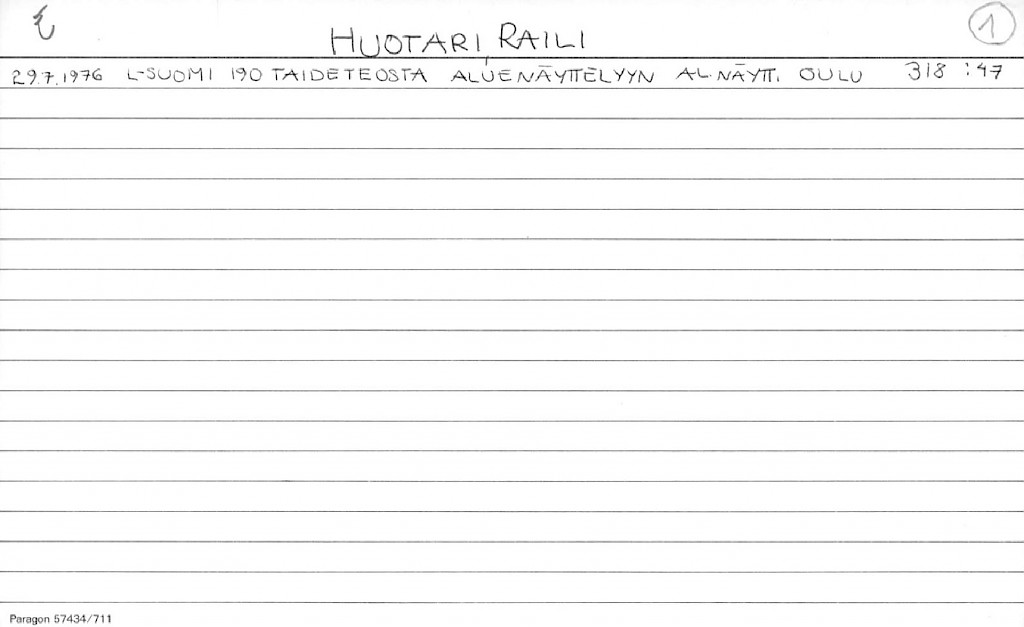 HUOTARI, RAILI
1
29.7.1976 L-SUOMI 190 TAIDETEOSTA ALUENÄYTTELYYN AL.NÄYTT. OULU 318 :47
Paragon 57434/711